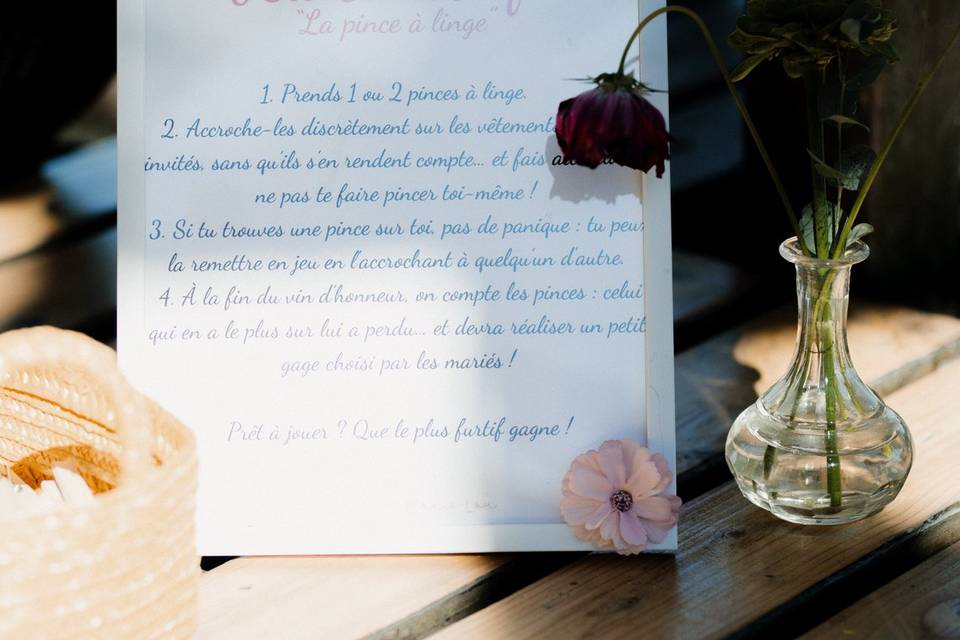 "La pince à linge"
1. Prends 1 ou 2 pinces à linge.
2. Accroche-les discrètement sur les vêtements
invités, sans qu'ils s'en rendent compte... et fais
ne pas te faire pincer toi-même !
3. Si tu trouves une pince sur toi, pas de panique : tu peux
la remettre en jeu en l'accrochant à quelqu'un d'autre.
4. À la fin du vin d'honneur, on compte les pinces : celui
qui en a le plus sur lui a perdu... et devra réaliser un petit
gage choisi par les mariés !
Prêt à jouer ? Que le plus furtif gagne !